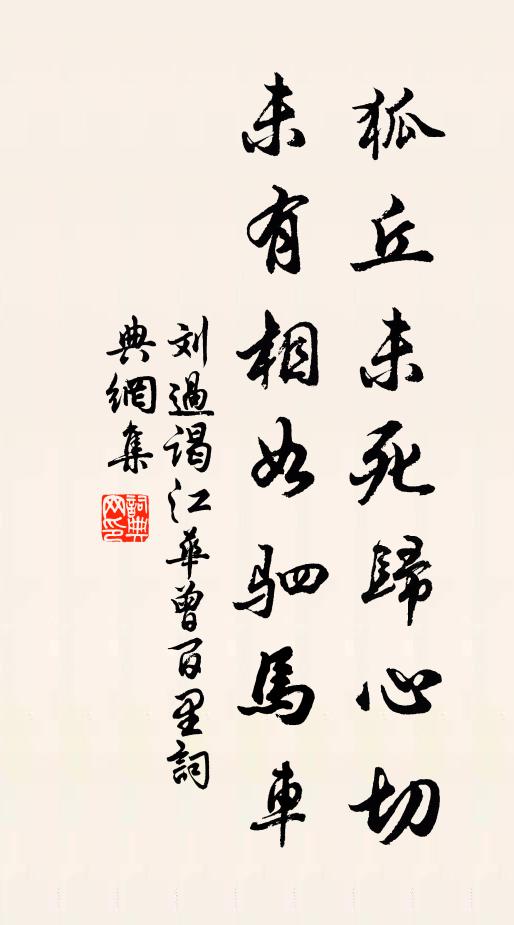 狐丘未死歸心切
未有相如駟馬車
刘過謁江華曾百里詞
典網集
詞典
网印